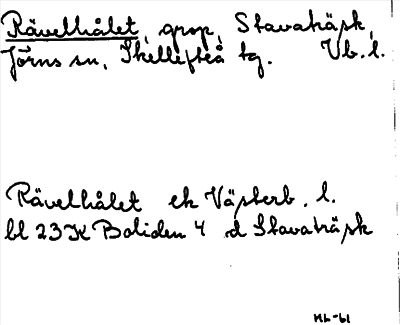 Rävelhålet, grop, Stavaträsk,
Jörns sn, Skellefteå tg. Vb. l.
Rävelhålet ek Västerb. l.
bl 23 K Boliden 4 d Stavaträsk